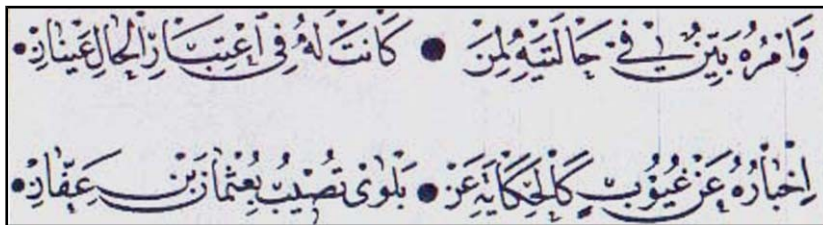 وَامْرُهُ بَيِّنٌ فِي حَالَتَيْهِ لِمَنْ • كَانَتْ لَهُ فِي اعْتِبَارِ الْحَالِ عَيْنَانِ •
اِخْبَارُهُ عَنْ غُيُوبٍ كَالْحِكَايَةِ عَنْ • بَلْوٰى تُصِيبُ بِعُثْمَانَ بْنِ عَفَّانِ •